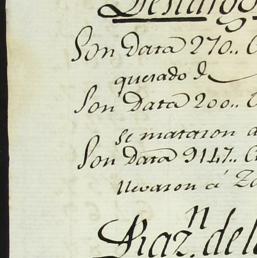 Son Data 270.. C
quesado d
Son Data 200.. C
se mataron a
Son Data 9147.. C
llevaron á Za
Raz.n de la